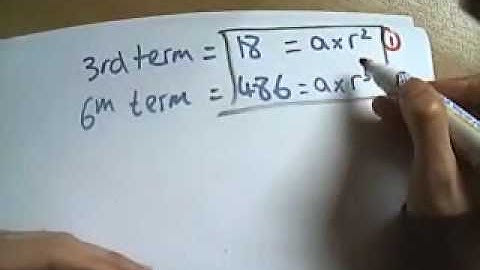 3rd term = 18 = a×r² ①
6th term = 486 = a×r⁵